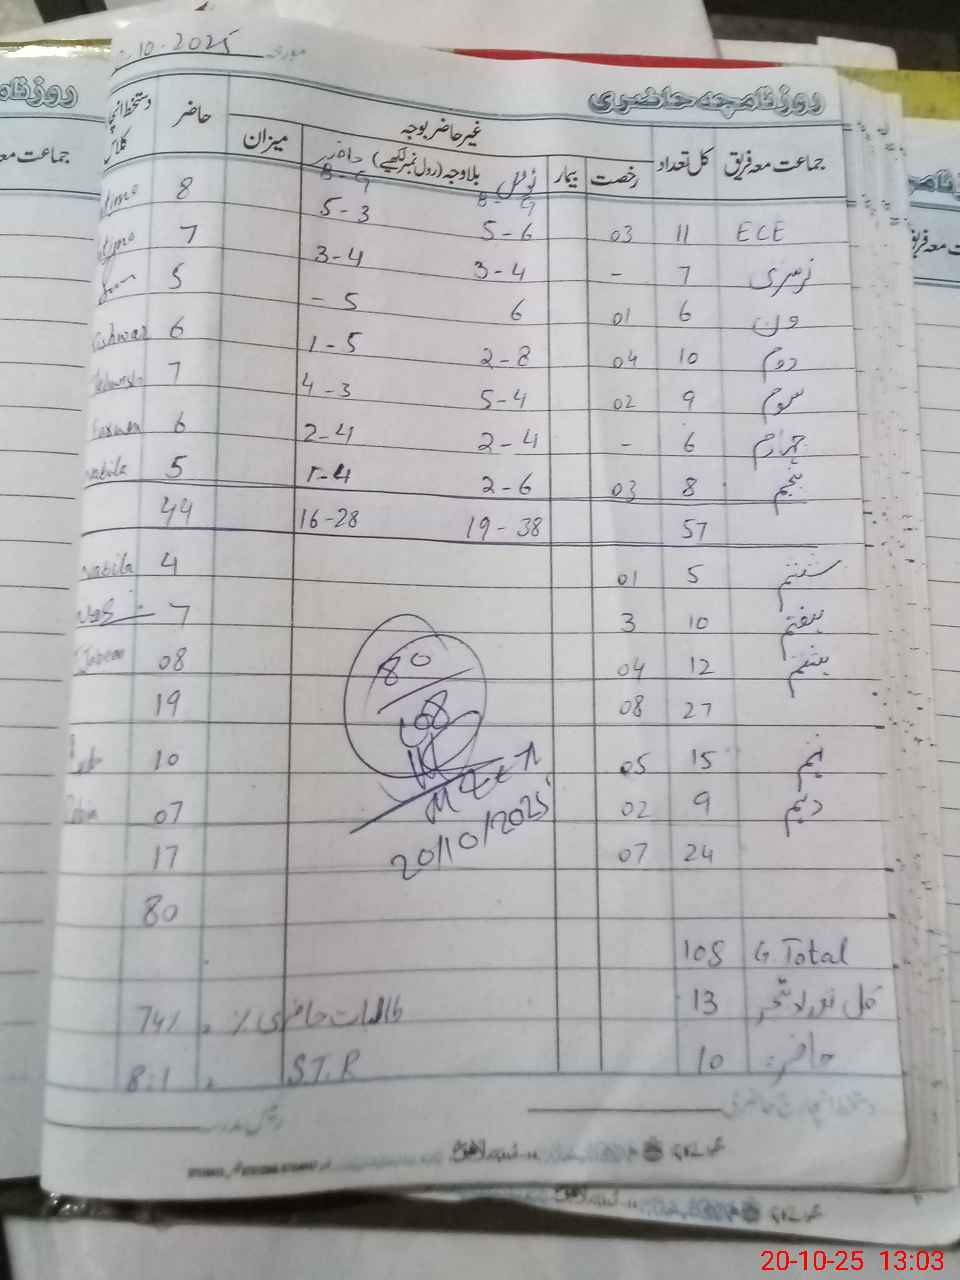 10-2025 مورخہ
روزنامچہ حاضری
جماعت معہ فریق کل تعداد رخصت بیمار غیر حاضر بوجہ میزان حاضر دستخط انچارج کلاس
ٹوٹل بلاوجہ (رول نمبر لکھیے) حاضر
8-9 8-9
ECE 11 03 5-6 5-3 8
نرسری 7 - 3-4 3-4 7
ون 6 01 6 - 5 5
دوم 10 04 2-8 1-5 6 Kishwar
سوم 9 02 5-4 4-3 7
چہارم 6 - 2-4 2-4 6
پنجم 8 03 2-6 1-4 5 Nabila
57 19-38 16-28 44
ششم 5 01 4 Nabila
ہفتم 10 3 7
ہشتم 12 04 08
27 08 19
نہم 15 05 10
دہم 9 02 07
24 07 17
80
108
20/10/2025
80
G.Total 108
کل 13
طالبات حاضری % 74%
حاضر: 10
S.T.R 8:1
دستخط انچارج حاضری
روزنامچہ
جماعت معہ
جماعت معہ فریق
20-10-25 13:03